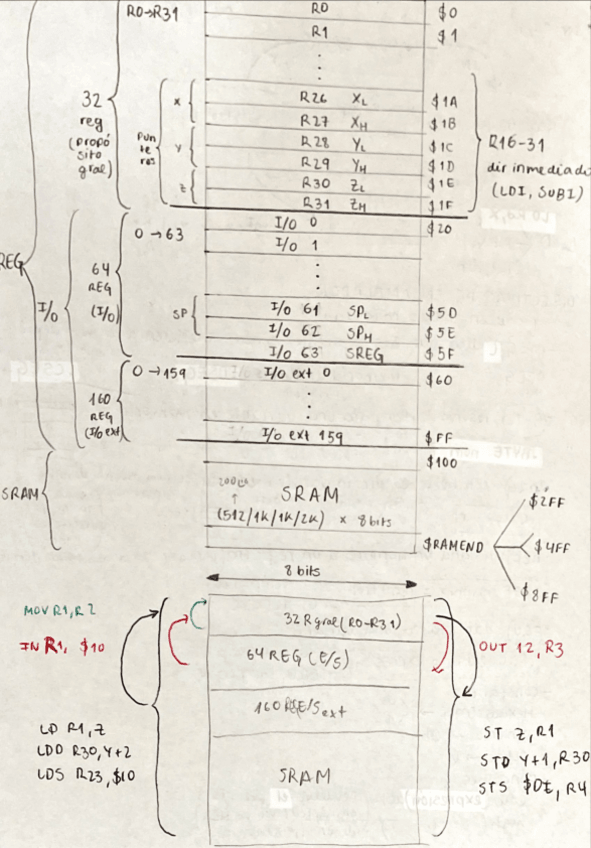 R0→R31 R0 $0
R1 $1
32 reg (propósito gral)
Punteros
X R26 XL $1A
R27 XH $1B
Y R28 YL $1C
R29 YH $1D
Z R30 ZL $1E
R31 ZH $1F
R16-31
dir inmediado
(LDI, SUBI)
REG
I/O
0→63 I/O 0 $20
I/O 1
64 REG (I/O)
SP I/O 61 SPL $5D
I/O 62 SPH $5E
I/O 63 SREG $5F
0→159 I/O ext 0 $60
160 REG (I/O ext)
I/O ext 159 $FF
$100
SRAM
SRAM
(512/1K/1K/2K) × 8bits
$RAMEND
$2FF
$4FF
$8FF
8 bits
MOV R1,R2
IN R1, $10
32 R gral (R0-R31)
OUT 12, R3
64 REG (E/S)
E/S ext
LD R1,Z
LDD R30,Y+2
LDS R23,$10
SRAM
ST Z,R1
STD Y+1,R30
STS R4